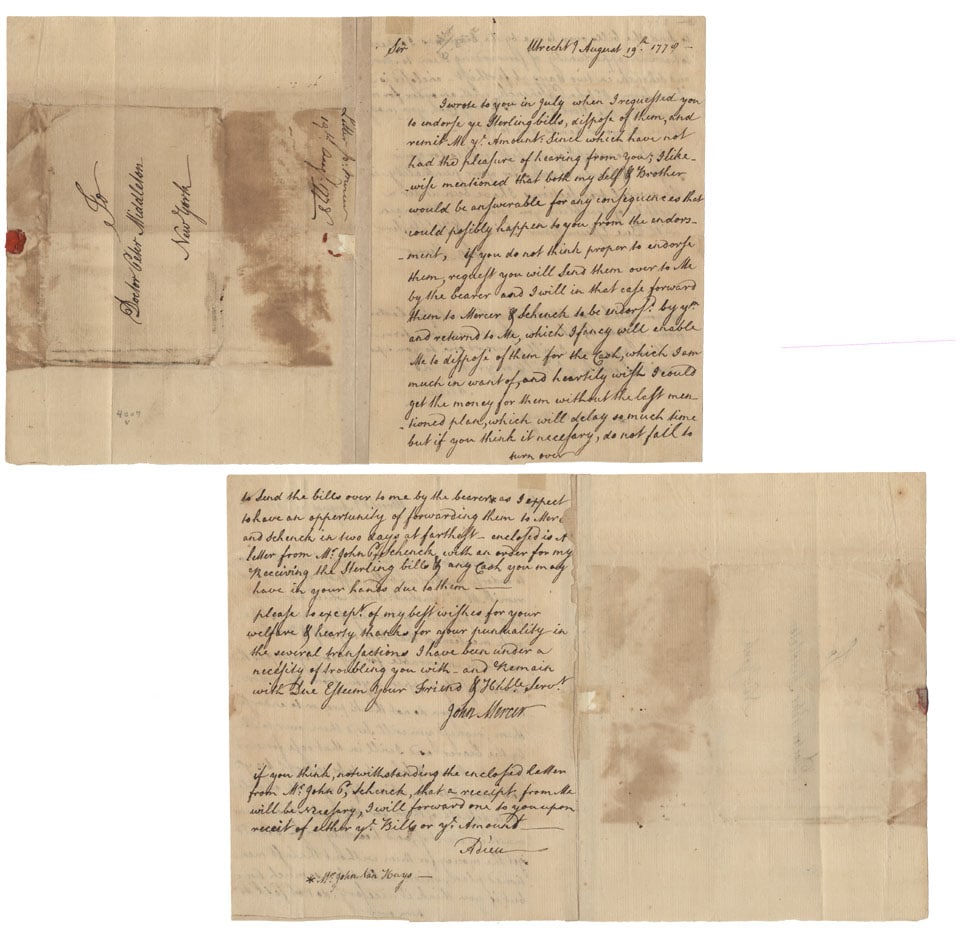 To
Doctor Peter Middleton
New York
19th Augt 1778
4207
Sir
Utrecht August 19th 1778 -
I wrote to you in July when I requested you
to endorse ye Sterling bills, dispose of them, and
remit Me yr Amount: Since which have not
had the pleasure of hearing from You; I like-
-wise mentioned that both my Self & Brother
would be answerable for any consequences that
could posibly happen to you from the endors-
-ment, if you do not think proper to endorse
them, request you will Send them over to Me
by the bearer and I will in that case forward
them to Mercer & Schenck to be endorsd by ym
and returnd to Me, which I fancy will enable
Me to disspose of them for the Cash, which I am
much in want of, and heartily wish I could
get the money for them without the last men-
-tioned plan, which will delay so much time
but if you think it necesary, do not fail to
turn over
to Send the bills over to me by the bearer* as I expect
to have an oppertunity of forwarding them to Merc
and Schenck in two days at farthest - enclosed is A
letter from Mr John P. Schenck, with an order for my
Receiving the Sterling bills & any Cash you may
have in your hands due to them -
please to except of my best wishes for your
welfare & hearty thanks for your puntuality in
the several transactions I have been under a
necesity of troubling you with - and Remain
with Due Esteem Your Friend & Hhble Servt
John Mercer
if you think, notwithstanding the enclosed Letter
from Mr John P. Schenck, that a receipt from Me
will be Necesary, I will forward one to you upon
receit of either ye Bills or ye Amount -
Adieu -
* Mr John Van Nuys -